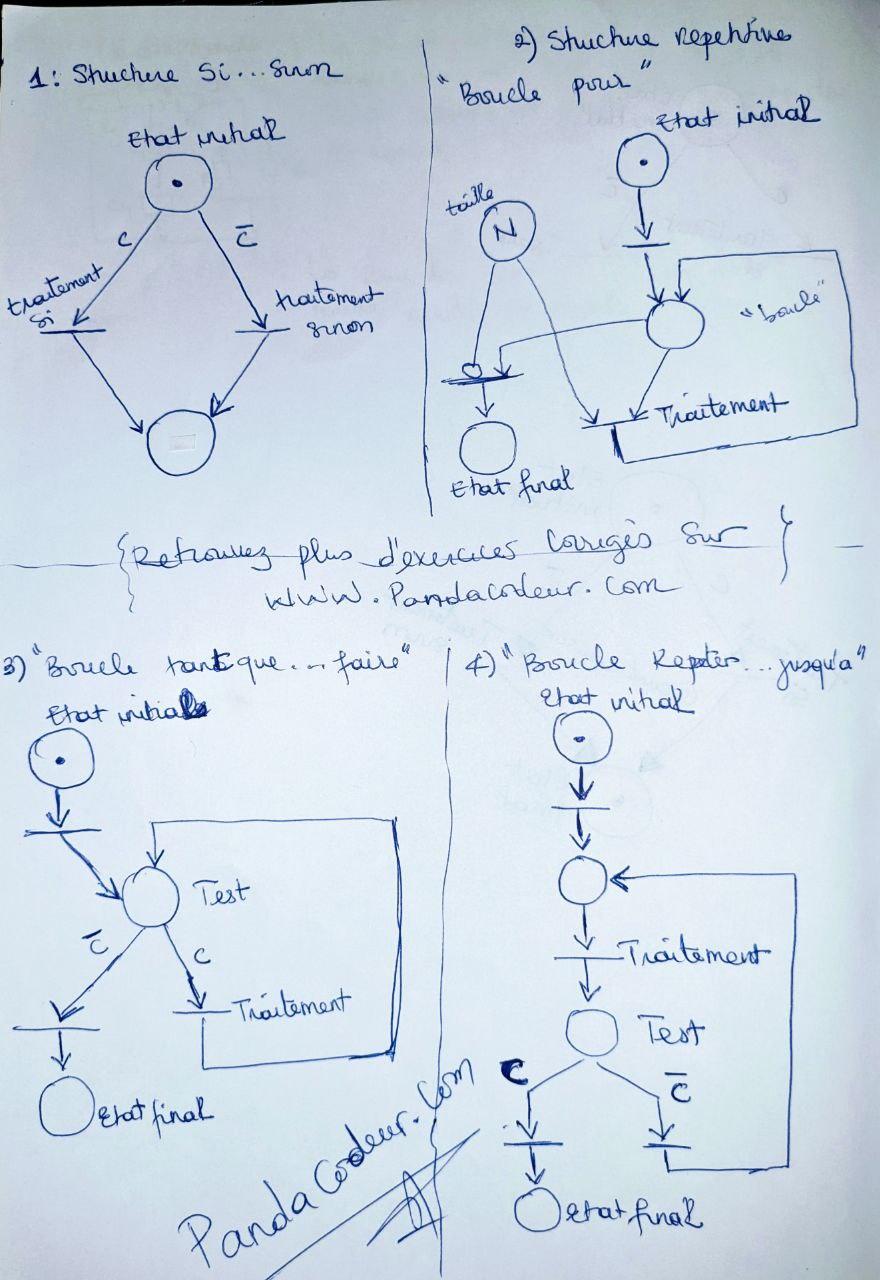 1: Structure Si...Sinon
Etat initial
C
C̅
traitement
si
traitement
sinon
2) Structure Repetitive
"Boucle pour"
Etat initial
taille
N
"boucle"
Traitement
Etat final
{Retrouvez plus d'exercices Corrigés Sur }
WWW.Pandacodeur.Com
3) "Boucle tant que... faire"
Etat initial
Test
C̅
C
Traitement
Etat final
4) "Boucle Repeter... jusqu'a"
Etat initial
Traitement
Test
C
C̅
Etat final
PandaCodeur.Com